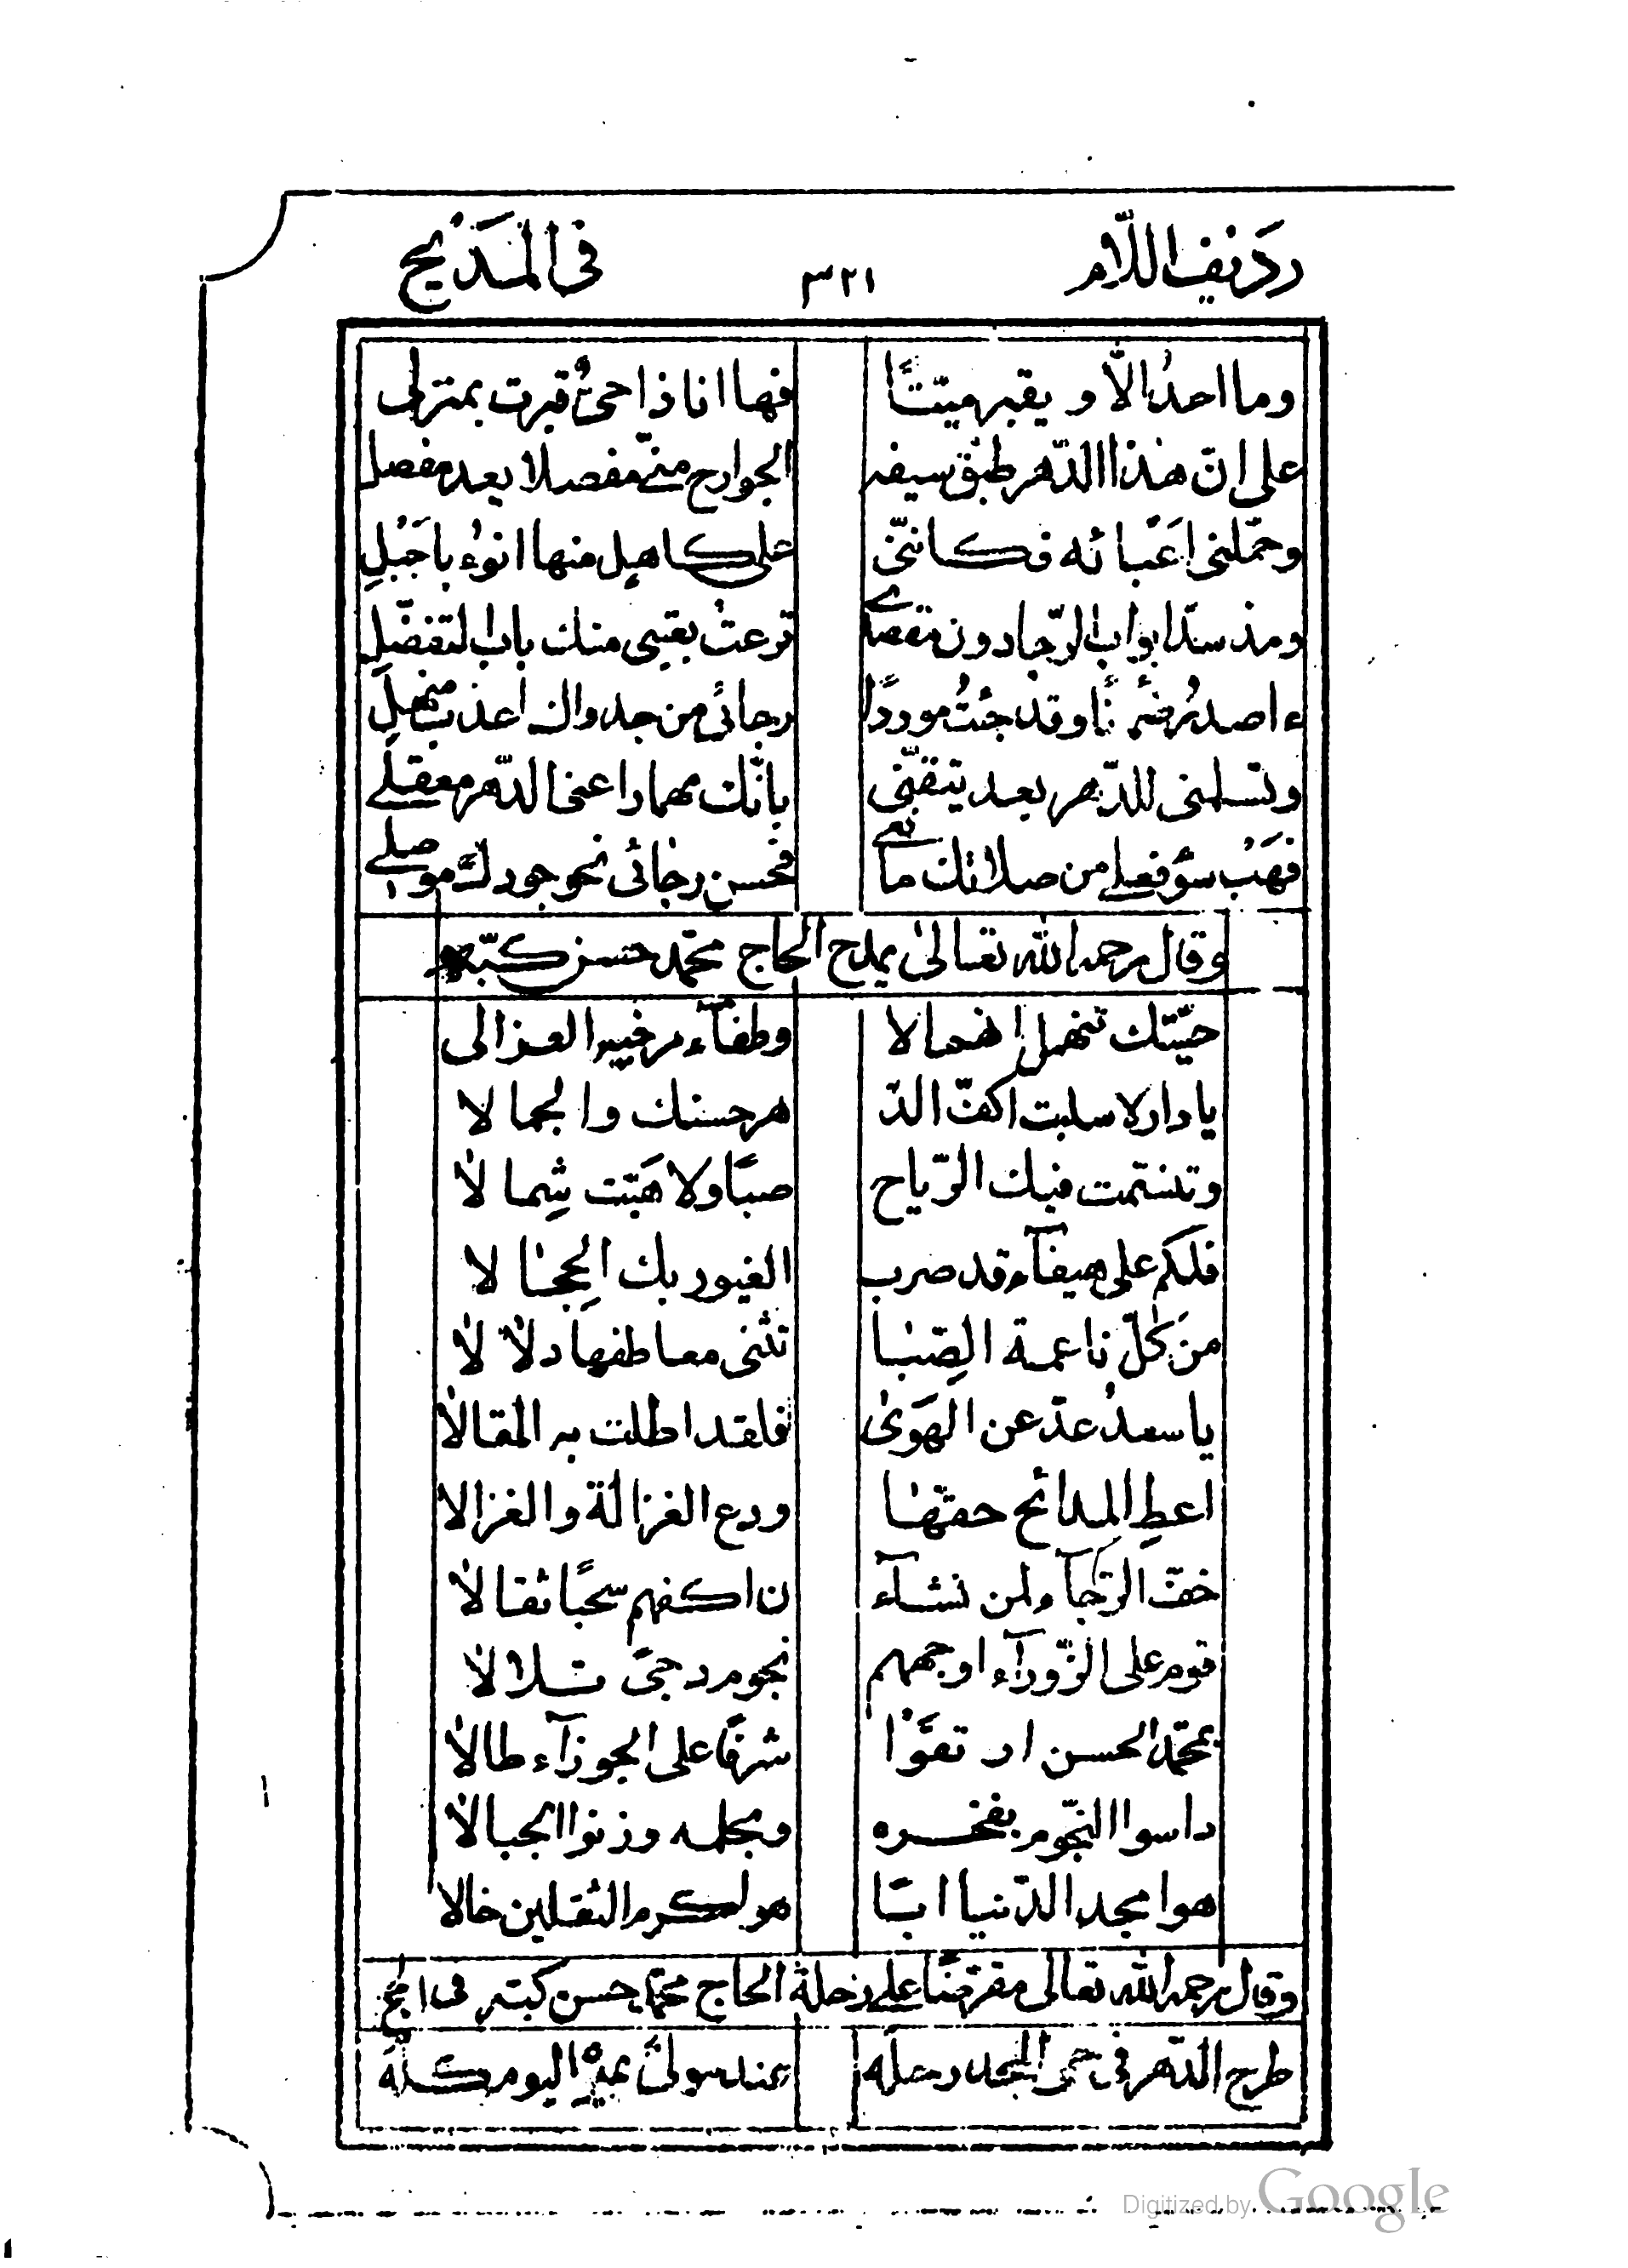 رديف اللّام ٣٢١ في المديح
وما احدُ الّا ويقبر ميّتًا فها انا ذا حيٌّ قبرت بمنزلى
على انّ هذا الدّهر طبّق سيفه الجوارح منّى مفصلا بعد مفصل
وحمّلنى اعبائه فكاننّى على كاهل منها انوء باجبُلِ
ومذ سدّ ابواب الرّجا دون مقصدى قرعتُ بقيبى منك باب التفضّلِ
ءاصدرُ ظمئانًا وقد جئتُ موردًا رجائى من جدواك اعذب منهلِ
وتسلمنى للدّهر بعد تيقّنى بانّك مهما راعنى الدّهر معقلى
فهَبْ سؤَ فعلى من صلاتك مانعى فحسن رجائى نحو جودك موصلى
وقال رحمه الله تعالى يمدح الحاج محمّد حسن كبّه
حيّتك تنهمل انهمالا وطفآء مرخية العزالى
يا دار لا سلبت اكفّ الدّ هر حسنك والجمالا
وتنسّمت فيك الرّياح صبًا ولا هبّت شِمالا
فلكم على هيفآء قد ضرب الغيور بك الحِجالا
من كلّ ناعمة الصِّبا تثنى معاطفها دلالا
يا سعدُ عدّ عن الهَوَى فلقد اطلت به المقالا
اعطِ المدائح حقّها ودع الغزالة والغزالا
خفّ الرّجآء ولن نشآء ن اكفهم سحبًا ثقالا
قوم على الزّورآء اوجههم نجوم دجىً تلالا
بمحمّد الحسن ارتقَوْا شرفًا على الجوزآء طالا
داسوا النّجوم بفخره وبحلمه وزنوا الجبالا
هو امجد الدّنيا ابًا هو اكرم الثقلين خالا
وقال رحمه الله تعالى مقرّضًا على رحلة الحاج محمّد حسن كبّه فى الحج
طرح الدّهر فى حمى المجد رحله عند مولىً به اليوم كلّه